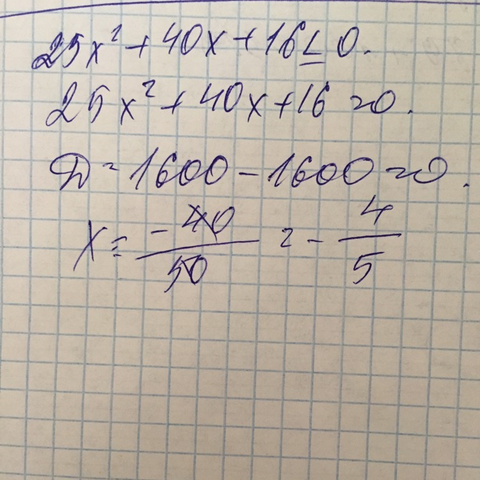 25x² + 40x + 16 ≤ 0.
25x² + 40x + 16 = 0.
D = 1600 - 1600 = 0.
x = -40/50 = -4/5